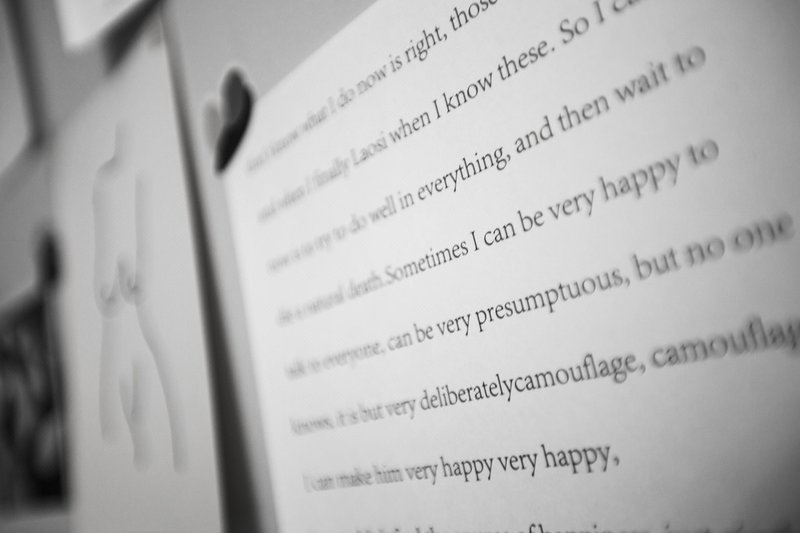 know what I do now is right, those
and when I finally Laosi when I know these. So I
now is to try to do well in everything, and then wait to
die a natural death.Sometimes I can be very happy to
talk to everyone, can be very presumptuous, but no one
knows, it is but very deliberatelycamouflage, camouflage
I can make him very happy very happy,